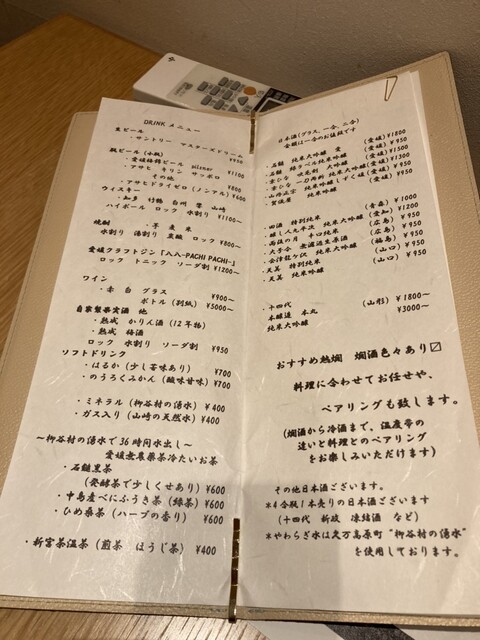 DRINK メニュー
生ビール
・サントリー マスターズドリーム
¥950
瓶ビール(小瓶)
・愛媛梅錦ビール pilsner ¥1100
・アサヒ キリン サッポロ
その他 ¥800
・アサヒドライゼロ(ノンアル) ¥600
ウィスキー
・知多 竹鶴 白州 響 山崎
ハイボール ロック 水割り ¥1100~
焼酎 ・芋 麦 米
水割り 湯割り 炭酸 ロック ¥800~
愛媛クラフトジン「八八-PACHI PACHI-」
ロック トニック ソーダ割 ¥1200~
ワイン
・赤 白 グラス ¥900~
ボトル(別紙) ¥5000~
自家製果実酒 他
・熟成 かりん酒(12年物)
・熟成 梅酒
ロック 水割り ソーダ割 ¥950
ソフトドリンク
・はるか(少し苦味あり) ¥700
・のうろくみかん(酸味甘味) ¥700
・ミネラル(柳谷村の湧水) ¥400
・ガス入り(山崎の天然水) ¥400
~柳谷村の湧水で36時間水出し~
愛媛無農薬茶冷たいお茶
・石鎚黒茶
(発酵茶で少しくせあり) ¥600
・中島産べにふうき茶(緑茶) ¥600
・ひめ桑茶(ハーブの香り) ¥600
・新宮茶温茶(煎茶 ほうじ茶) ¥400
日本酒(グラス、一合、二合)
金額は一合のお値段です
・石鎚 純米大吟醸 愛 (愛媛) ¥1800
・石鎚 緑ラベル純米吟醸 (愛媛) ¥950
・京ひな 吹毛剣 大吟醸 (愛媛) ¥1500
・京ひな 一刀両断 純米大吟醸 (愛媛) ¥1300
・山丹正宗 純米吟醸しずく媛 (愛媛) ¥950
・賀儀屋 純米吟醸 (愛媛) ¥950
・田酒 特別純米 (青森) ¥1000
・醸し人九平次 純米大吟醸 (愛知) ¥1200
・雨後の月 十口純米 (広島) ¥950
・天寶一 無濾過生原酒 (広島) ¥950
・会津龍ケ沢 純米大吟醸 (福島) ¥950
・天美 特別純米 (山口) ¥950
・天美 純米吟醸 (山口) ¥950
・十四代 (山形) ¥1800~
本醸造 本丸
純米大吟醸 ¥3000~
おすすめ熱燗 燗酒色々あり〼
料理に合わせてお任せや、
ペアリングも致します。
(燗酒から冷酒まで、温度帯の
違いと料理とのペアリング
をお楽しみいただけます)
その他日本酒ございます
※4合瓶1本売りの日本酒ございます
(十四代 新政 凍結酒 など)
※やわらぎ水は久万高原町"柳谷村の湧水"
を使用しております。